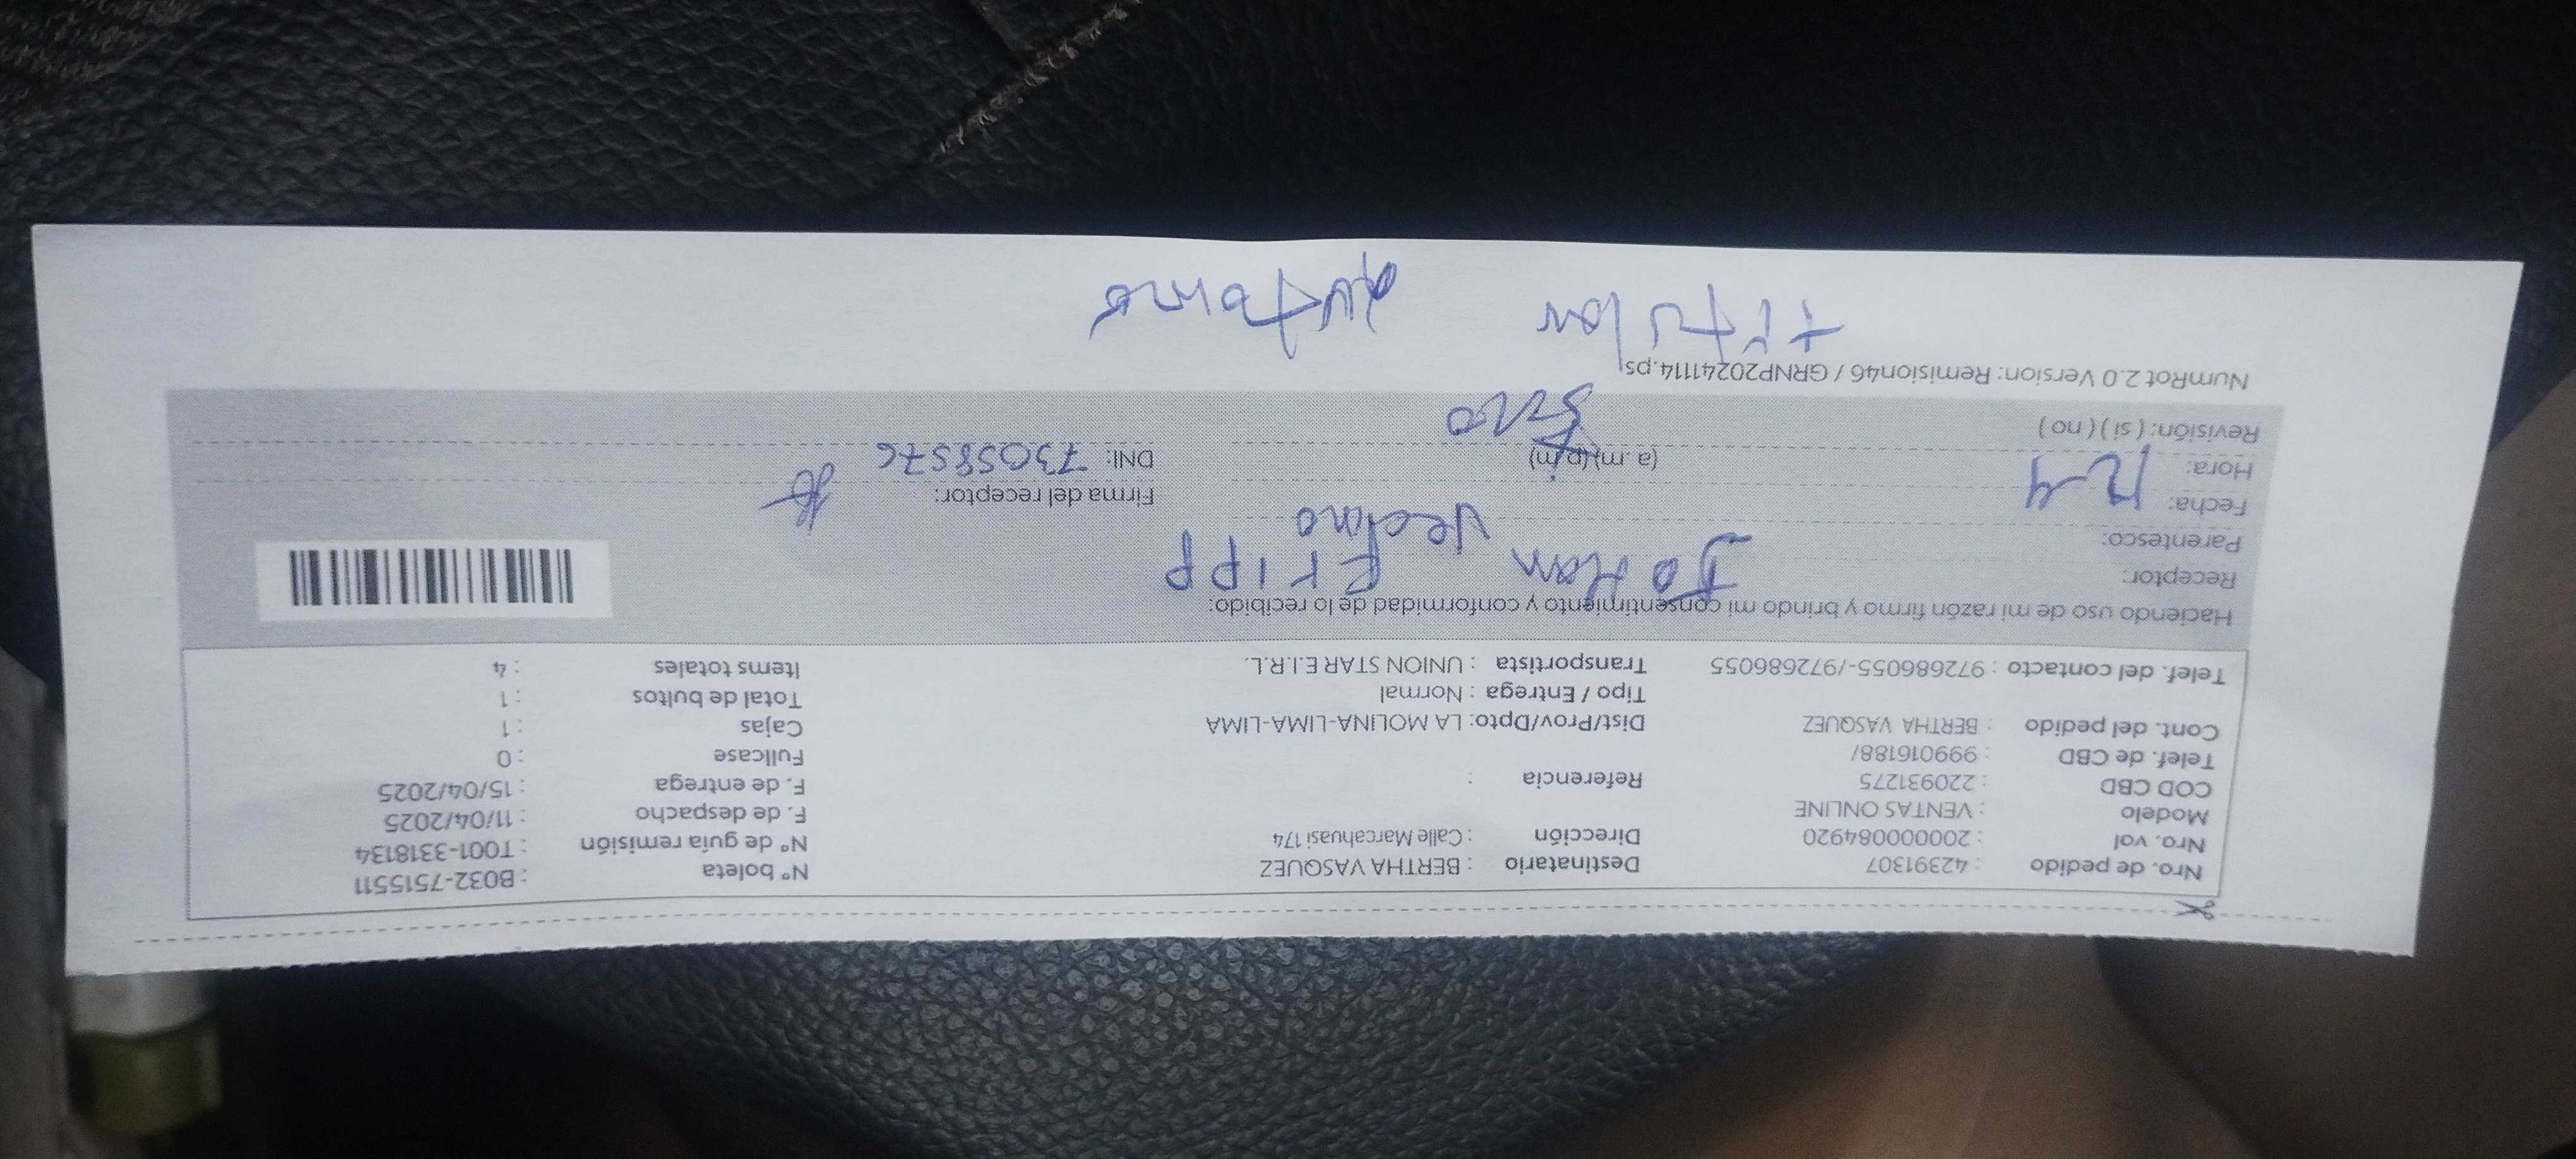 Nro. de pedido : 42391307
Nro. vol : 20000084920
Modelo : VENTAS ONLINE
COD CBD : 220931275
Telef. de CBD : 999016188/
Cont. del pedido : BERTHA VASQUEZ
Telef. del contacto : 972686055-/972686055
Destinatario : BERTHA VASQUEZ
Dirección : Calle Marcahuasi 174
Referencia :
Dist/Prov/Dpto: LA MOLINA-LIMA-LIMA
Tipo / Entrega : Normal
Transportista : UNION STAR E.I.R.L.
N° boleta : B032-7515511
N° de guía remisión : T001-3318134
F. de despacho : 11/04/2025
F. de entrega : 15/04/2025
Fullcase : 0
Cajas : 1
Total de bultos : 1
Items totales : 4
Haciendo uso de mi razón firmo y brindo mi consentimiento y conformidad de lo recibido:
Receptor: Johan Fripp
Parentesco: vecino
Fecha: 12-4
Firma del receptor:
Hora: (a.m) (p.m)
DNI: 73058576
Revisión: ( si ) ( no )
NumRot 2.0 Version: Remision46 / GRNP20241114.ps
titular autoriza